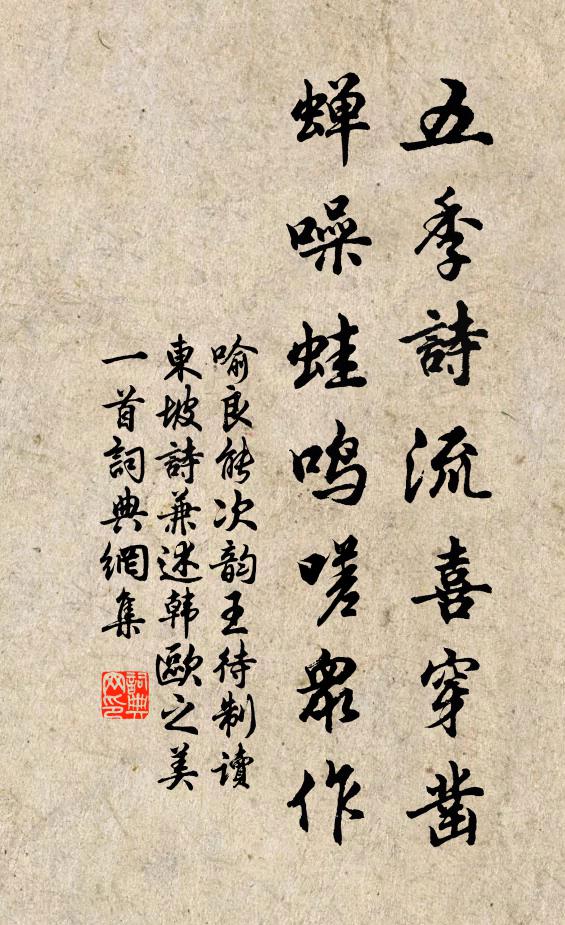 五季詩流喜穿凿
蝉噪蛙鸣嗟眾作
喻良能次韵王待制读
東坡詩兼述韩歐之美
一首詞典網集
詞典
网印